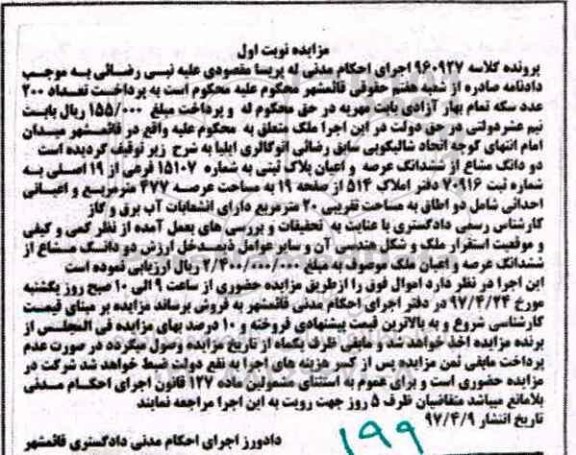 مزایده نوبت اول
پرونده کلاسه ۹۶۰۹۲۷ اجرای احکام مدنی له پریسا مقصودی علیه نبی رضائی به موجب
دادنامه صادره از شعبه هفتم حقوقی قائمشهر محکوم علیه محکوم است به پرداخت تعداد ۲۰۰
عدد سکه تمام بهار آزادی بابت مهریه در حق محکوم له و پرداخت مبلغ ۱۵۵/۰۰۰ ریال بابت
نیم عشردولتی در حق دولت در این اجرا ملک متعلق به محکوم علیه واقع در قائمشهر میدان
امام انتهای کوچه اتحاد شالیکوبی سابق رضائی اتوگالری ایلیا به شرح زیر توقیف گردیده است
دو دانگ مشاع از ششدانگ عرصه و اعیان پلاک ثبتی به شماره ۱۵۱۰۷ فرعی از ۱۹ اصلی به
شماره ثبت ۷۰۹۱۶ دفتر املاک ۵۱۴ از صفحه ۱۹ به مساحت عرصه ۴۷۷ مترمربع و اعیانی
احداثی شامل دو اطاق به مساحت تقریبی ۲۰ مترمربع دارای انشعابات آب برق و گاز
کارشناس رسمی دادگستری با عنایت به تحقیقات و بررسی های بعمل آمده از نظر کمی و کیفی
و موقعیت استقرار ملک و شکل هندسی آن و سایر عوامل ذیمدخل ارزش دو دانگ مشاع از
ششدانگ عرصه و اعیان ملک موصوف به مبلغ ۲/۴۰۰/۰۰۰/۰۰۰ ریال ارزیابی نموده است
این اجرا در نظر دارد اموال فوق را ازطریق مزایده حضوری از ساعت ۹ الی ۱۰ صبح روز یکشنبه
مورخ ۹۷/۴/۲۴ در دفتر اجرای احکام مدنی قائمشهر به فروش برساند مزایده بر مبنای قیمت
کارشناسی شروع و به بالاترین قیمت پیشنهادی فروخته و ۱۰ درصد بهای مزایده فی المجلس از
برنده مزایده اخذ خواهد شد و مابقی ظرف یکماه از تاریخ مزایده وصول میگردد در صورت عدم
پرداخت مابقی ثمن مزایده پس از کسر هزینه های اجرا به نفع دولت ضبط خواهد شد شرکت در
مزایده حضوری است و برای عموم به استثنای مشمولین ماده ۱۲۷ قانون اجرای احکام مدنی
بلامانع میباشد متقاضیان ظرف ۵ روز جهت رویت به این اجرا مراجعه نمایند
تاریخ انتشار ۹۷/۴/۹
۱۹۹
دادورز اجرای احکام مدنی دادگستری قائمشهر